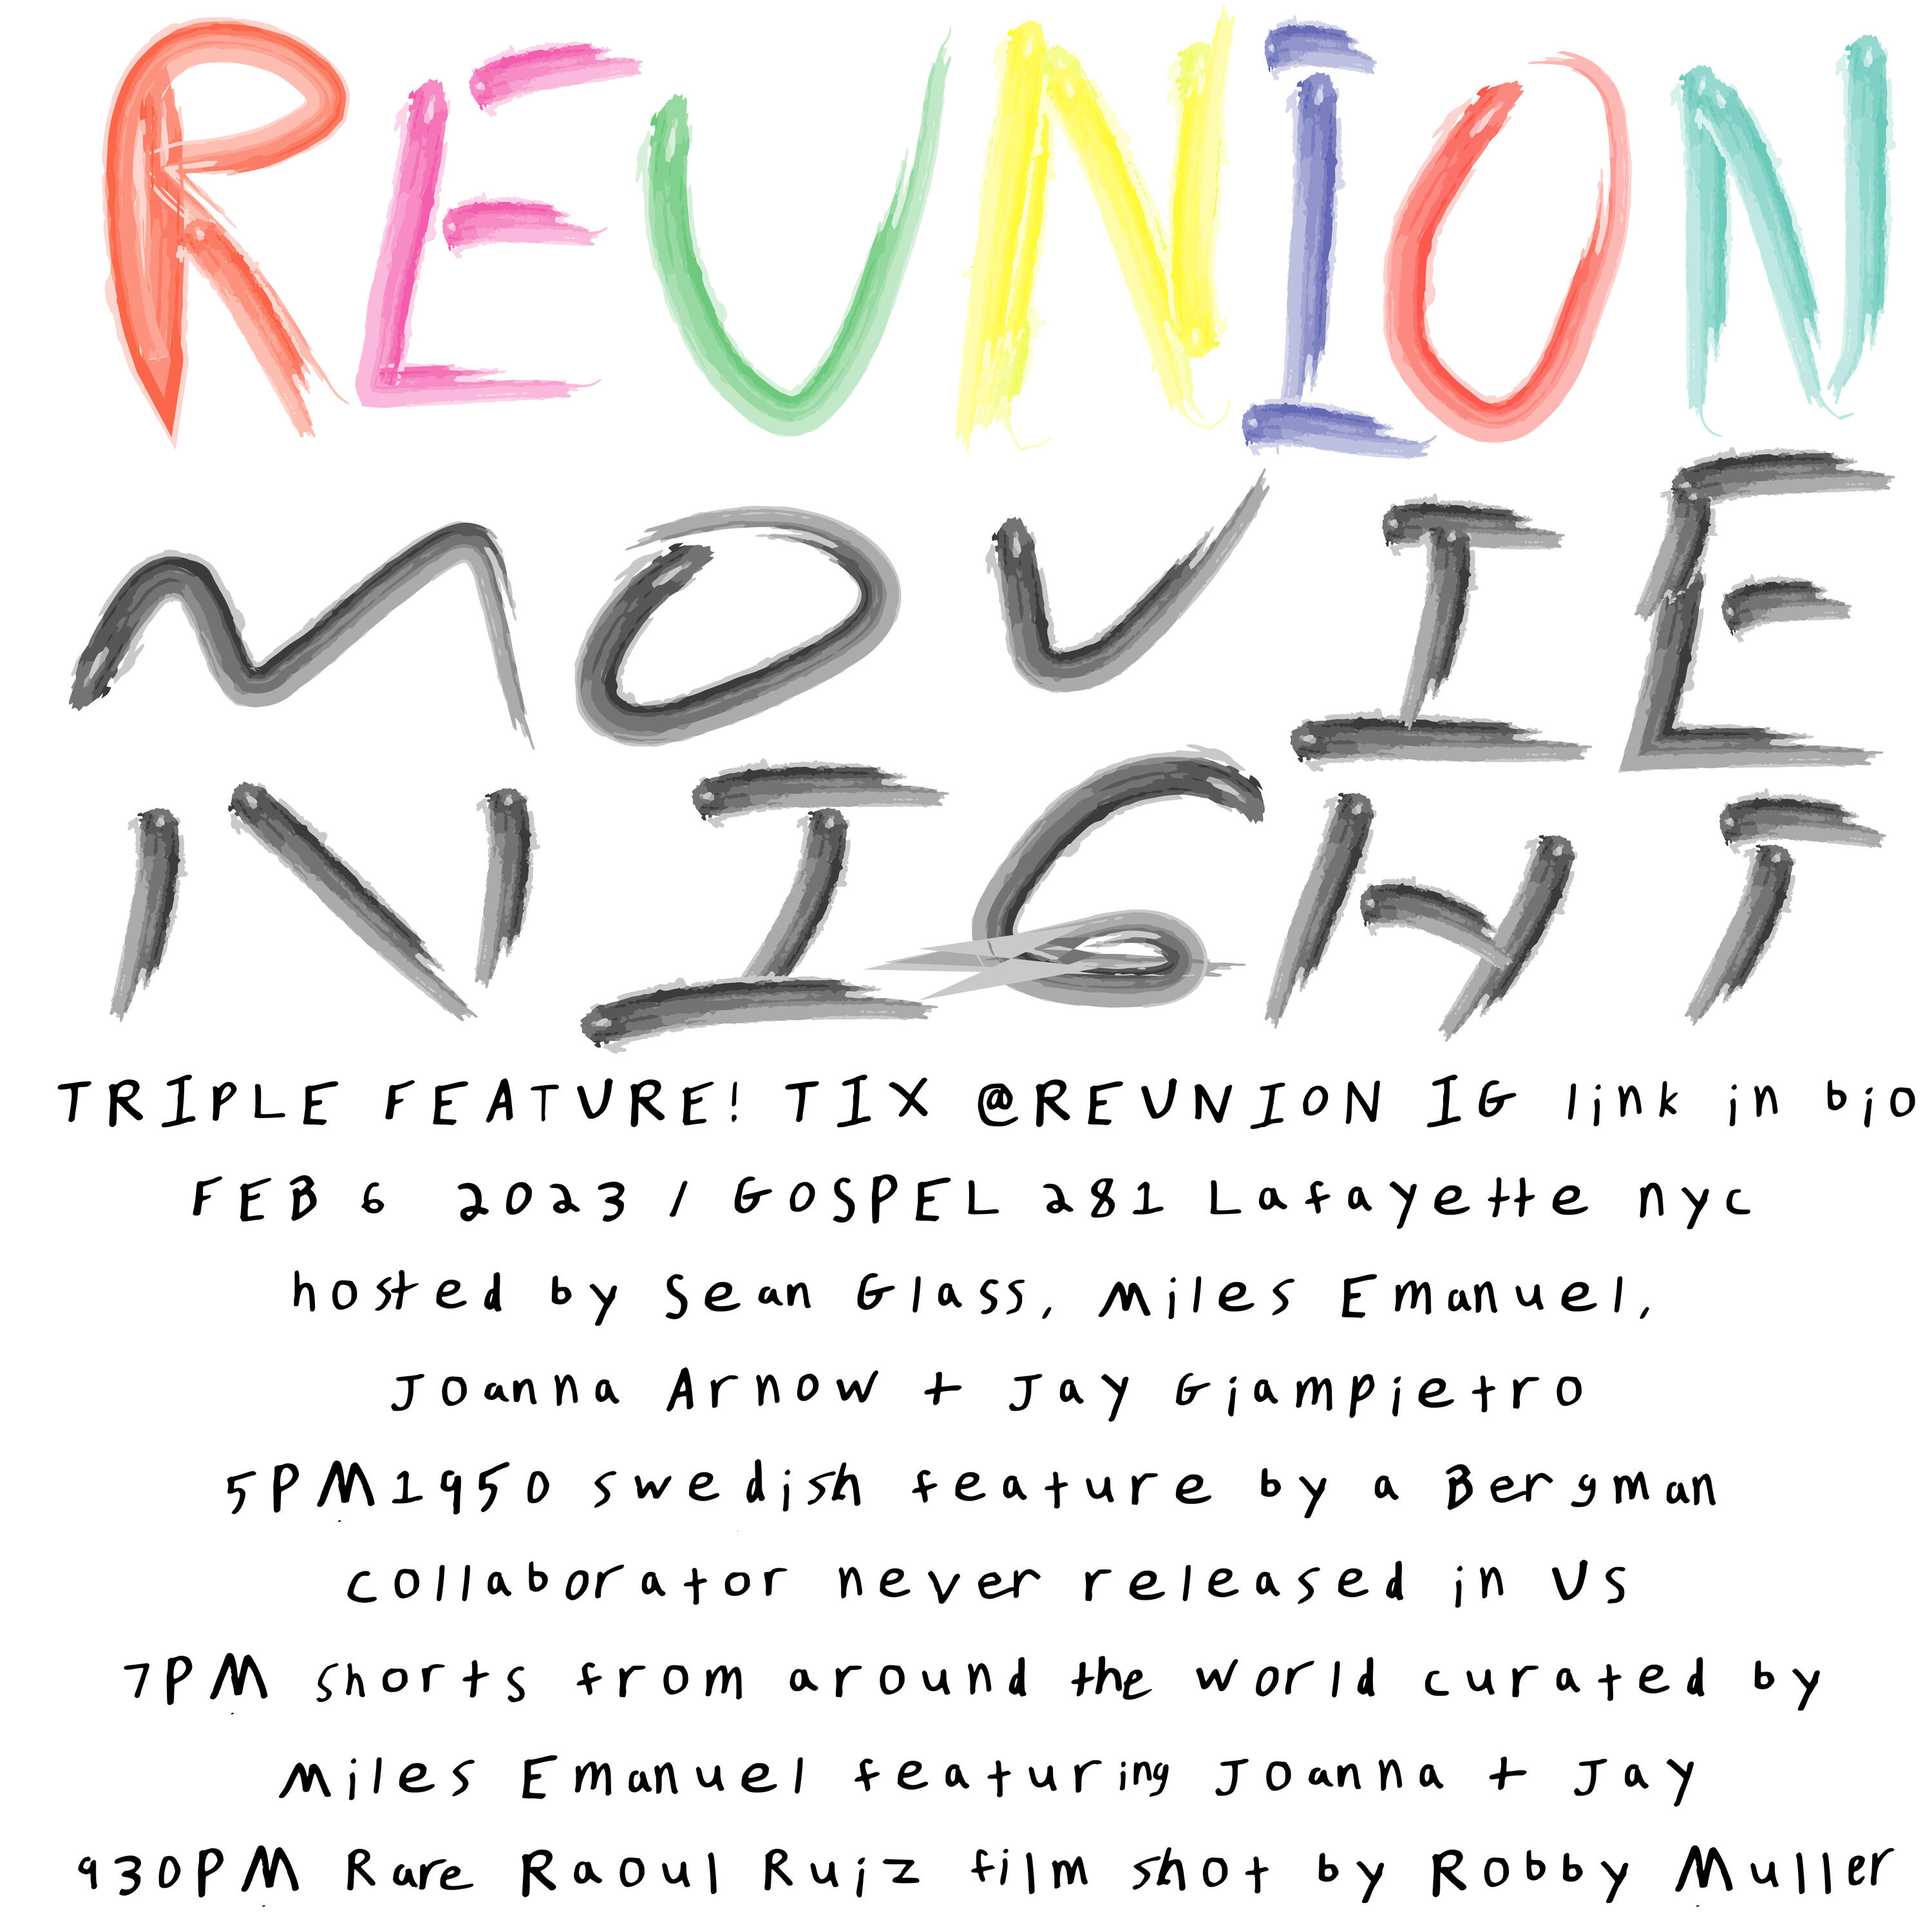 REUNION
MOVIE
NIGHT
TRIPLE FEATURE! TIX @REUNION IG link in bio
FEB 6 2023 / GOSPEL 281 Lafayette nyc
hosted by Sean Glass, Miles Emanuel,
Joanna Arnow + Jay Giampietro
5PM1950 swedish feature by a Bergman
collaborator never released in US
7PM shorts from around the world curated by
Miles Emanuel featuring Joanna + Jay
930PM Rare Raoul Ruiz film shot by Robby Muller